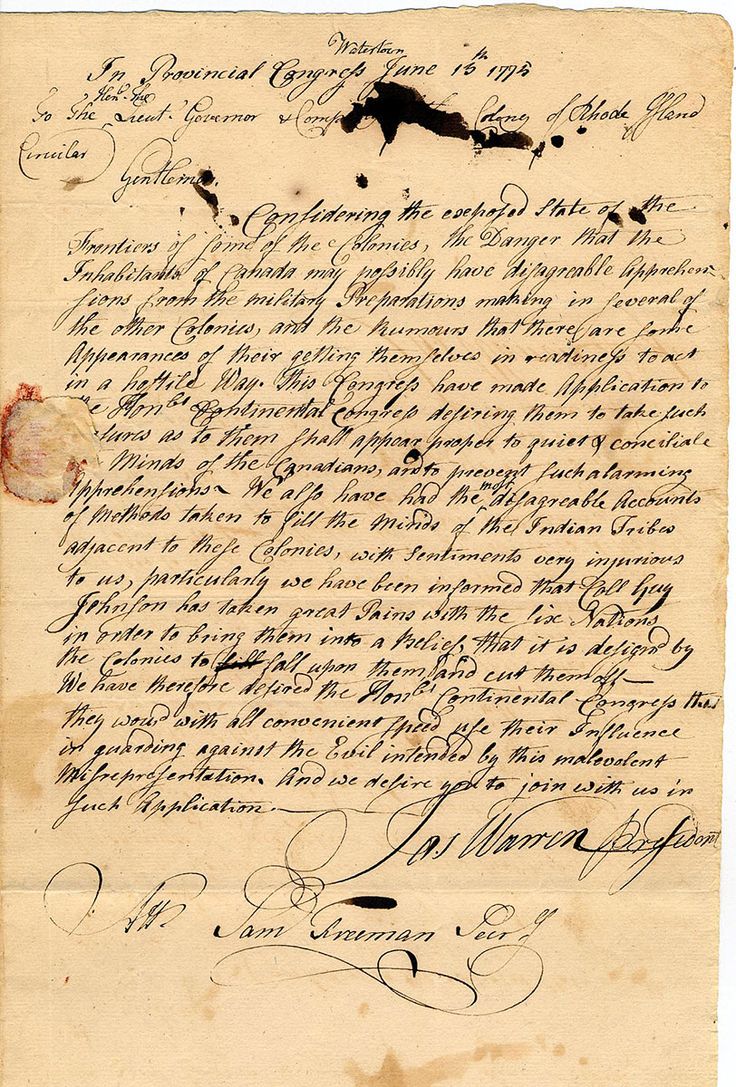 Watertown
In Provincial Congress June 15th 1775
Honble The
To The Lieut. Governor & Comp Colony of Rhode Island
Circular
Gentlemen.
Considering the exeposed State of the
Frontiers of some of the Colonies, the Danger that the
Inhabitants of Canada may possibly have disagreable Apprehen-
sions from the military Preparations making in several of
the other Colonies, and the Rumours that there are some
Appearances of their getting themselves in readiness to act
in a hostile Way. this Congress have made Application to
the Honbl Continental Congress desiring them to take such
sures as to them shall appear proper to quiet & conciliate
Minds of the Canadians, and to prevent such alarming
Apprehensions ~ We also have had the most disagreable Accounts
of Methods taken to fill the Minds of the Indian Tribes
adjacent to these Colonies, with Sentiments very injurious
to us, particularly we have been informed that Coll Guy
Johnson has taken great Pains with the six Nations
in order to bring them into a Belief, that it is design'd by
the Colonies to fall upon them and cut them off —
We have therefore desired the Honbl Continental Congress that
they would with all convenient speed use their Influence
in guarding against the Evil intended by this malevolent
Misrepresentation. And we desire you to join with us in
such Application. —
Jas Warren President
Att. Saml Freeman Secry